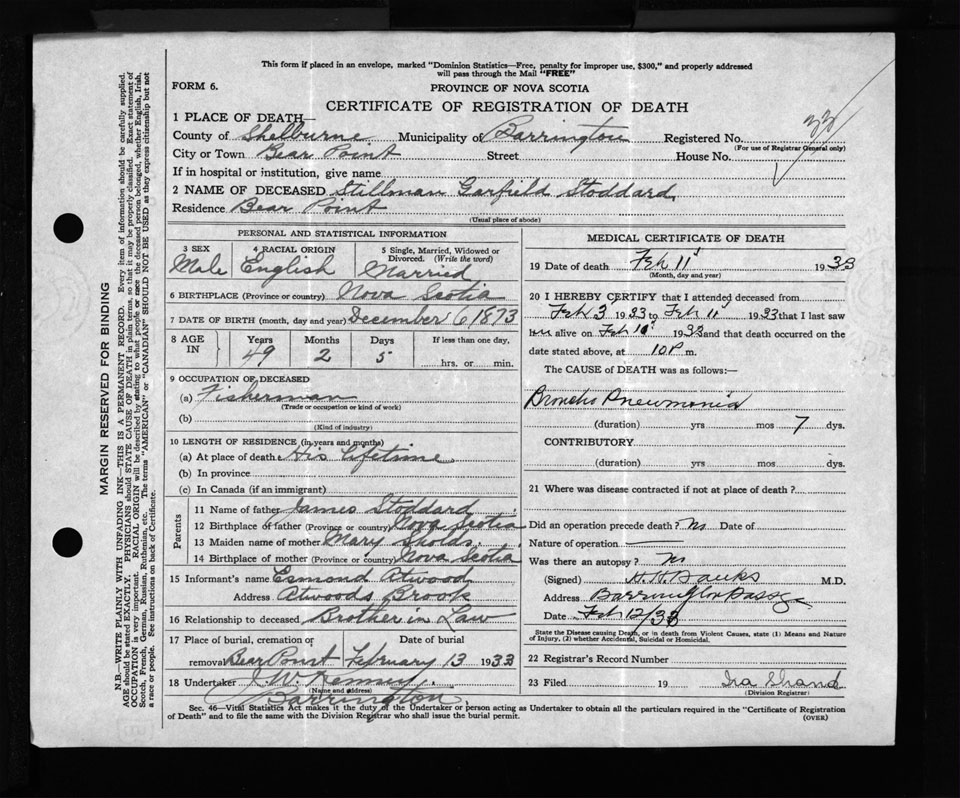 This form if placed in an envelope, marked "Dominion Statistics—Free, penalty for improper use, $300," and properly addressed
will pass through the Mail "FREE"
FORM 6.
PROVINCE OF NOVA SCOTIA
CERTIFICATE OF REGISTRATION OF DEATH
1 PLACE OF DEATH—
County of Shelburne Municipality of Barrington Registered No.
(For use of Registrar General only)
City or Town Bear Point Street House No.
If in hospital or institution, give name
2 NAME OF DECEASED Stillman Garfield Stoddard
Residence Bear Point
(Usual place of abode)
PERSONAL AND STATISTICAL INFORMATION
3 SEX 4 RACIAL ORIGIN 5 Single, Married, Widowed or
Divorced. (Write the word)
Male English Married
6 BIRTHPLACE (Province or country) Nova Scotia
7 DATE OF BIRTH (month, day and year) December 6 1873
8 AGE IN Years Months Days If less than one day,
49 2 5 hrs. or min.
9 OCCUPATION OF DECEASED
(a) Fisherman
(Trade or occupation or kind of work)
(b)
(Kind of industry)
10 LENGTH OF RESIDENCE (in years and months)
(a) At place of death His Lifetime
(b) In province
(c) In Canada (if an immigrant)
Parents
11 Name of father James Stoddard
12 Birthplace of father (Province or country) Nova Scotia
13 Maiden name of mother Mary
14 Birthplace of mother (Province or country) Nova Scotia
15 Informant's name Esmond Atwood
Address Atwoods Brook
16 Relationship to deceased Brother in Law
17 Place of burial, cremation or Date of burial
removal Bear Point February 13 1933
18 Undertaker J. W. Kenney
(Name and address)
Barrington
MEDICAL CERTIFICATE OF DEATH
19 Date of death Feb 11 1933
(Month, day and year)
20 I HEREBY CERTIFY that I attended deceased from
Feb 3 1933 to Feb 11 1933 that I last saw
him alive on Feb 1933 and that death occurred on the
date stated above, at 10 P m.
The CAUSE of DEATH was as follows:—
Broncho Pneumonia
(duration) yrs mos 7 dys.
CONTRIBUTORY
(duration) yrs mos dys.
21 Where was disease contracted if not at place of death?
Did an operation precede death? No Date of
Nature of operation
Was there an autopsy? No
(Signed) H. H. Banks M.D.
Address Barrington Passage
Date Feb 12/33
State the Disease causing Death, or in death from Violent Causes, state (1) Means and Nature
of Injury, (2) whether Accidental, Suicidal or Homicidal.
22 Registrar's Record Number
23 Filed 19 Ira Shand
(Division Registrar)
Sec. 46—Vital Statistics Act makes it the duty of the Undertaker or person acting as Undertaker to obtain all the particulars required in the "Certificate of Registration
of Death" and to file the same with the Division Registrar who shall issue the burial permit.
(OVER)
MARGIN RESERVED FOR BINDING
N.B.—WRITE PLAINLY WITH UNFADING INK—THIS IS A PERMANENT RECORD. Every item of information should be carefully supplied.
AGE should be stated EXACTLY. PHYSICIANS should STATE CAUSE OF DEATH in plain terms, so that it may be properly classified. Exact statement of
OCCUPATION is very important. RACIAL ORIGIN will be described by stating to what people or race the deceased person belonged, whether English, Irish,
Scotch, French, German, Russian, Ruthenian, etc. The terms "AMERICAN" or "CANADIAN" SHOULD NOT BE USED as they express citizenship but not
a race or people. See instructions on back of Certificate.